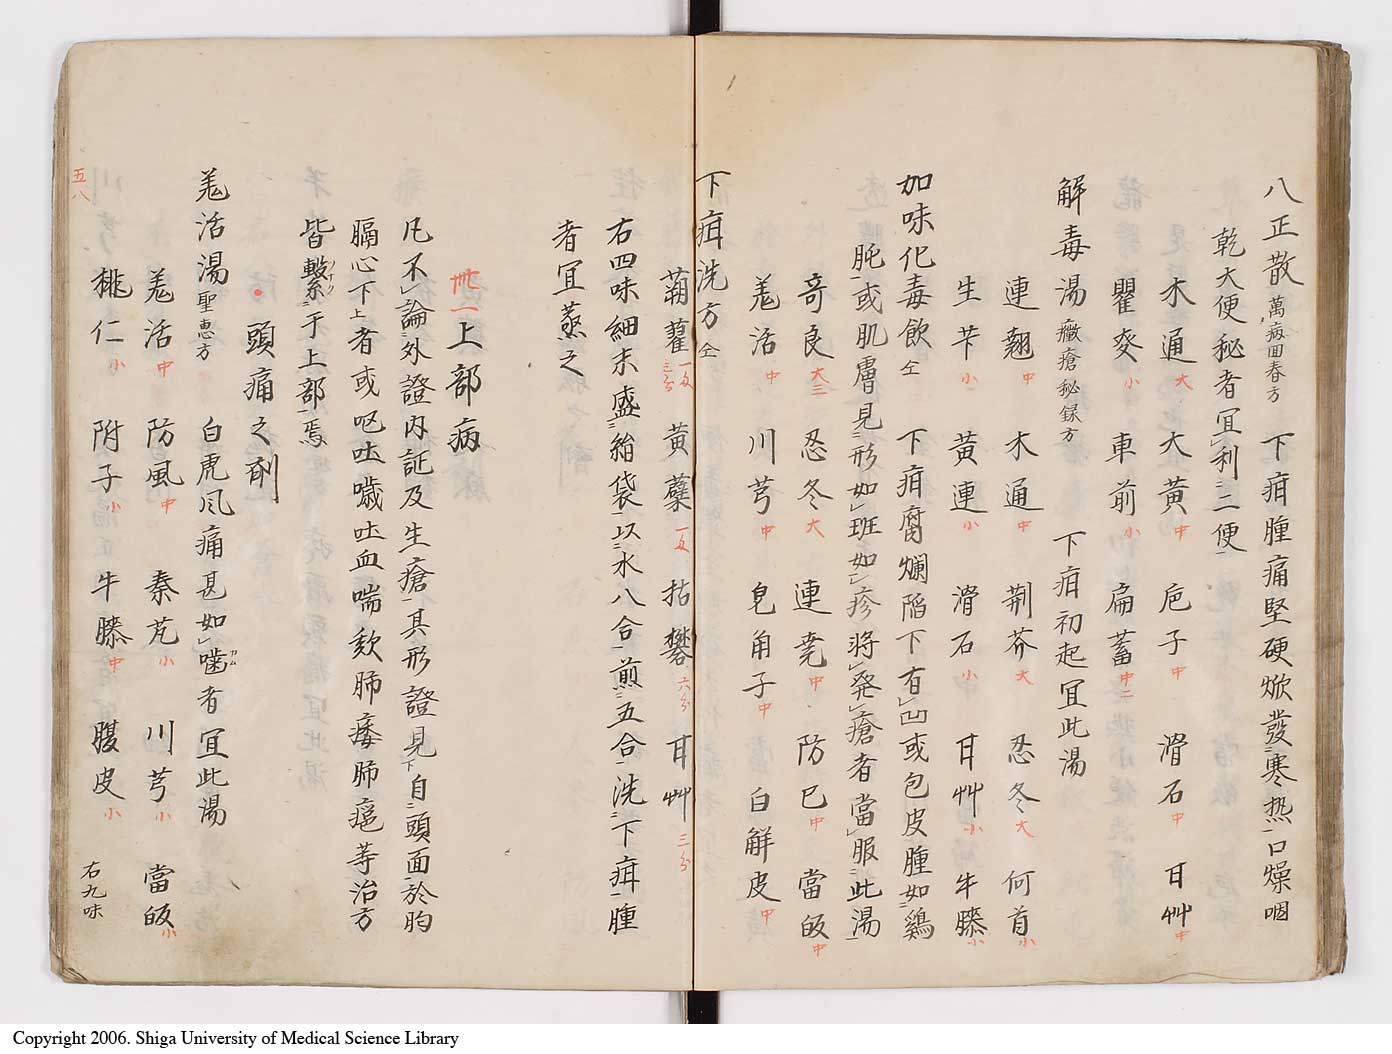 八正散 萬病回春方 下疳腫痛堅硬焮發寒热口燥咽
乾大便秘者宜利二便
木通大 大黄中 巵子中 滑石中 甘艸中
瞿麥小 車前小 扁蓄中二
解毒湯 癥瘡秘録方 下疳初起宜此湯
連翹中 木通中 荆芥大 忍冬大 何首小
生芐小 黄連小 滑石小 甘艸小 牛膝小
加味化毒飲 仝 下疳腐爛陷下有凹或包皮腫如鷄
肫或肌膚見形如班如疹將発瘡者當服此湯
奇良大三 忍冬大 連堯中 防巳中 當皈中
羗活中 川芎中 皂角子中 白解皮中
下疳洗方 仝
蒴藋 黄蘗 枯礬六分 甘艸三分
右四味細末盛絹袋以水八合煎五合洗下疳腫
者宜蒸之
卅一上部病
凡不論外證内証及生瘡其形證見自頭面於胸
膈心下上者或呕吐噦吐血喘欬肺痿肺癰等治方
皆繫于上部焉
頭痛之剤
羗活湯 聖惠方 白虎风痛甚如噛カム者宜此湯
羗活中 防風中 秦艽小 川芎小 當皈小
桃仁小 附子小 牛膝中 腹皮小 右九味
五八
Copyright 2006. Shiga University of Medical Science Library